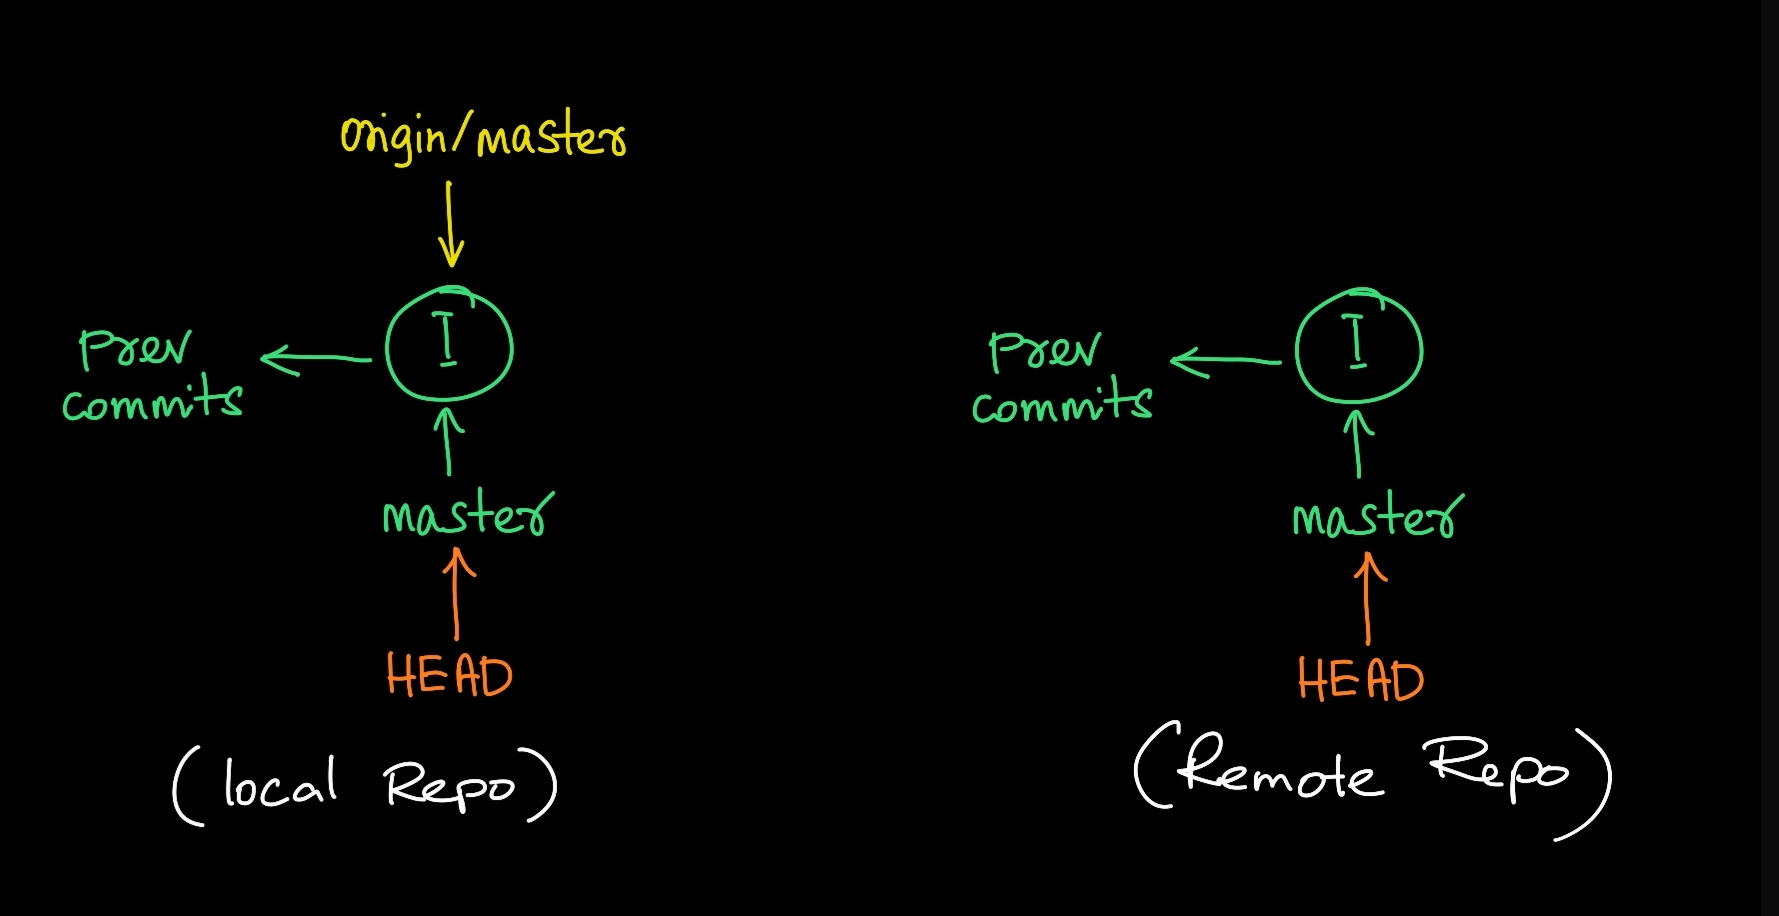 origin/master
I
Prev
commits
master
HEAD
(local Repo)
I
Prev
commits
master
HEAD
(Remote Repo)